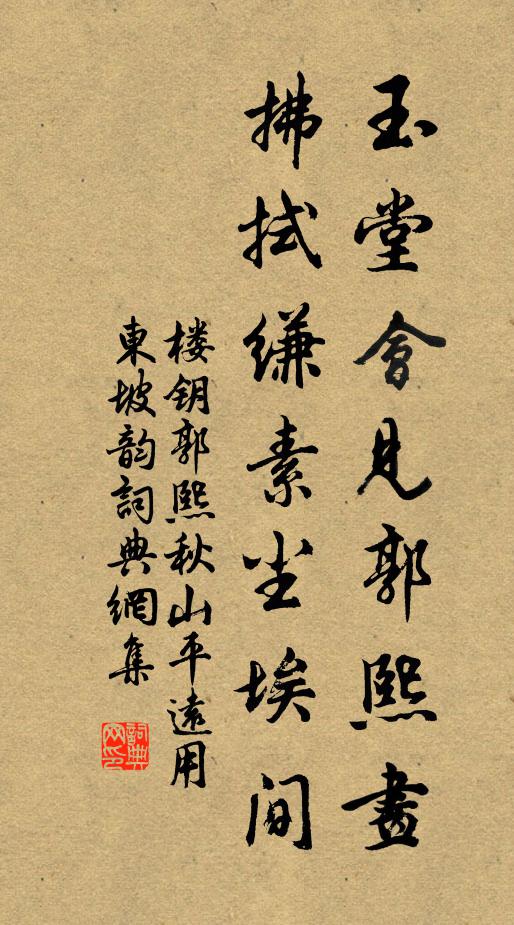 玉堂會見郭熙畫
拂拭縑素尘埃間
楼钥郭熙秋山平遠用
東坡韵詞典網集
詞典網印